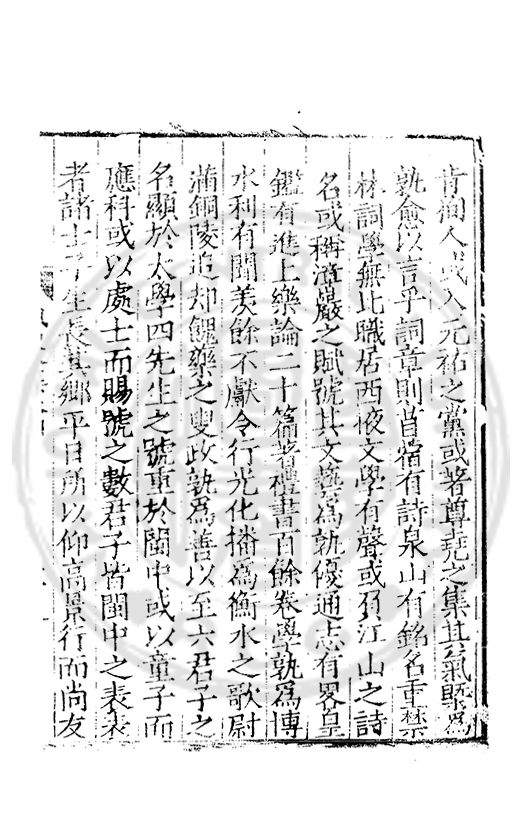 肯附人或入元祐之黨或著尊堯之集其氣槩爲
孰愈以言乎詞章則苜蓿有詩泉山有銘名重禁
林詞學無比職居西掖文學有聲或負江山之詩
名或稱渾嚴之賦號其文藝爲孰優通志有畧皇
鑑有進上樂論二十篇著禮書百餘卷學孰爲博
水利有聞羡餘不獻令行光化播爲衡水之歌尉
滿銅陵追却餽藥之叟政孰爲善以至六君子之
名顯於太學四先生之號重於閩中或以童子而
應科或以處士而賜號之數君子皆閩中之表表
者諸士子生長其鄉平日所以仰高景行而尚友